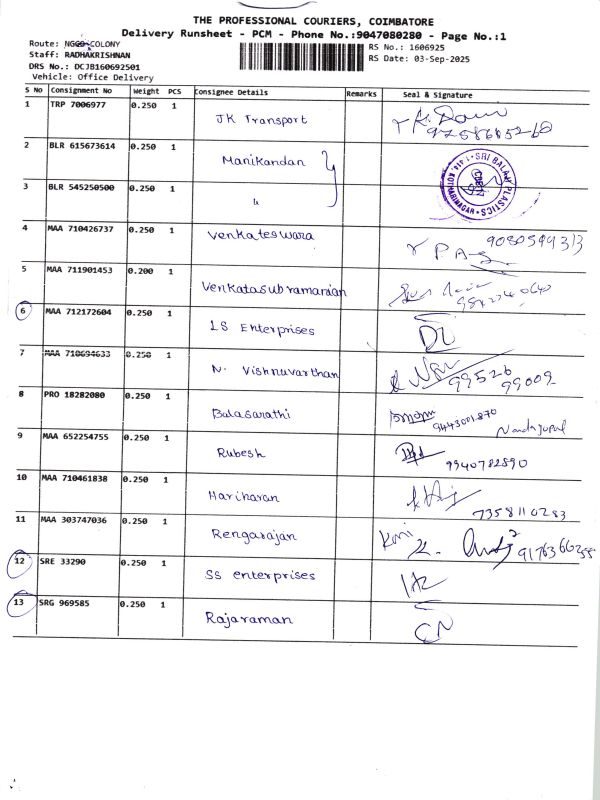 THE PROFESSIONAL COURIERS, COIMBATORE
Delivery Runsheet - PCM - Phone No.:9047080280 - Page No.:1
Route: NGGO-COLONY
RS No.: 1606925
Staff: RADHAKRISHNAN
RS Date: 03-Sep-2025
DRS No.: DCJB160692501
Vehicle: Office Delivery
S No Consignment No Weight PCS Consignee Details Remarks Seal & Signature
1 TRP 7006977 0.250 1 JK Transport
2 BLR 615673614 0.250 1 Manikandan
SRI BALAJI PLASTICS
3 BLR 545250500 0.250 1 "
4 MAA 710426737 0.250 1 Venkateswara 9080594313
5 MAA 711901453 0.200 1 Venkatasubramanian
6 MAA 712172604 0.250 1 LS Enterprises DL
7 MAA 710694633 0.250 1 N. Vishnuvarthan 99526
99009
8 PRO 18282080 0.250 1 Balasarathi 9443001870
9 MAA 652254755 0.250 1 Rubesh 9940782890
10 MAA 710461838 0.250 1 Hariharan 7358110283
11 MAA 303747036 0.250 1 Rengarajan
12 SRE 33290 0.250 1 SS enterprises
13 SRG 969585 0.250 1 Rajaraman CN